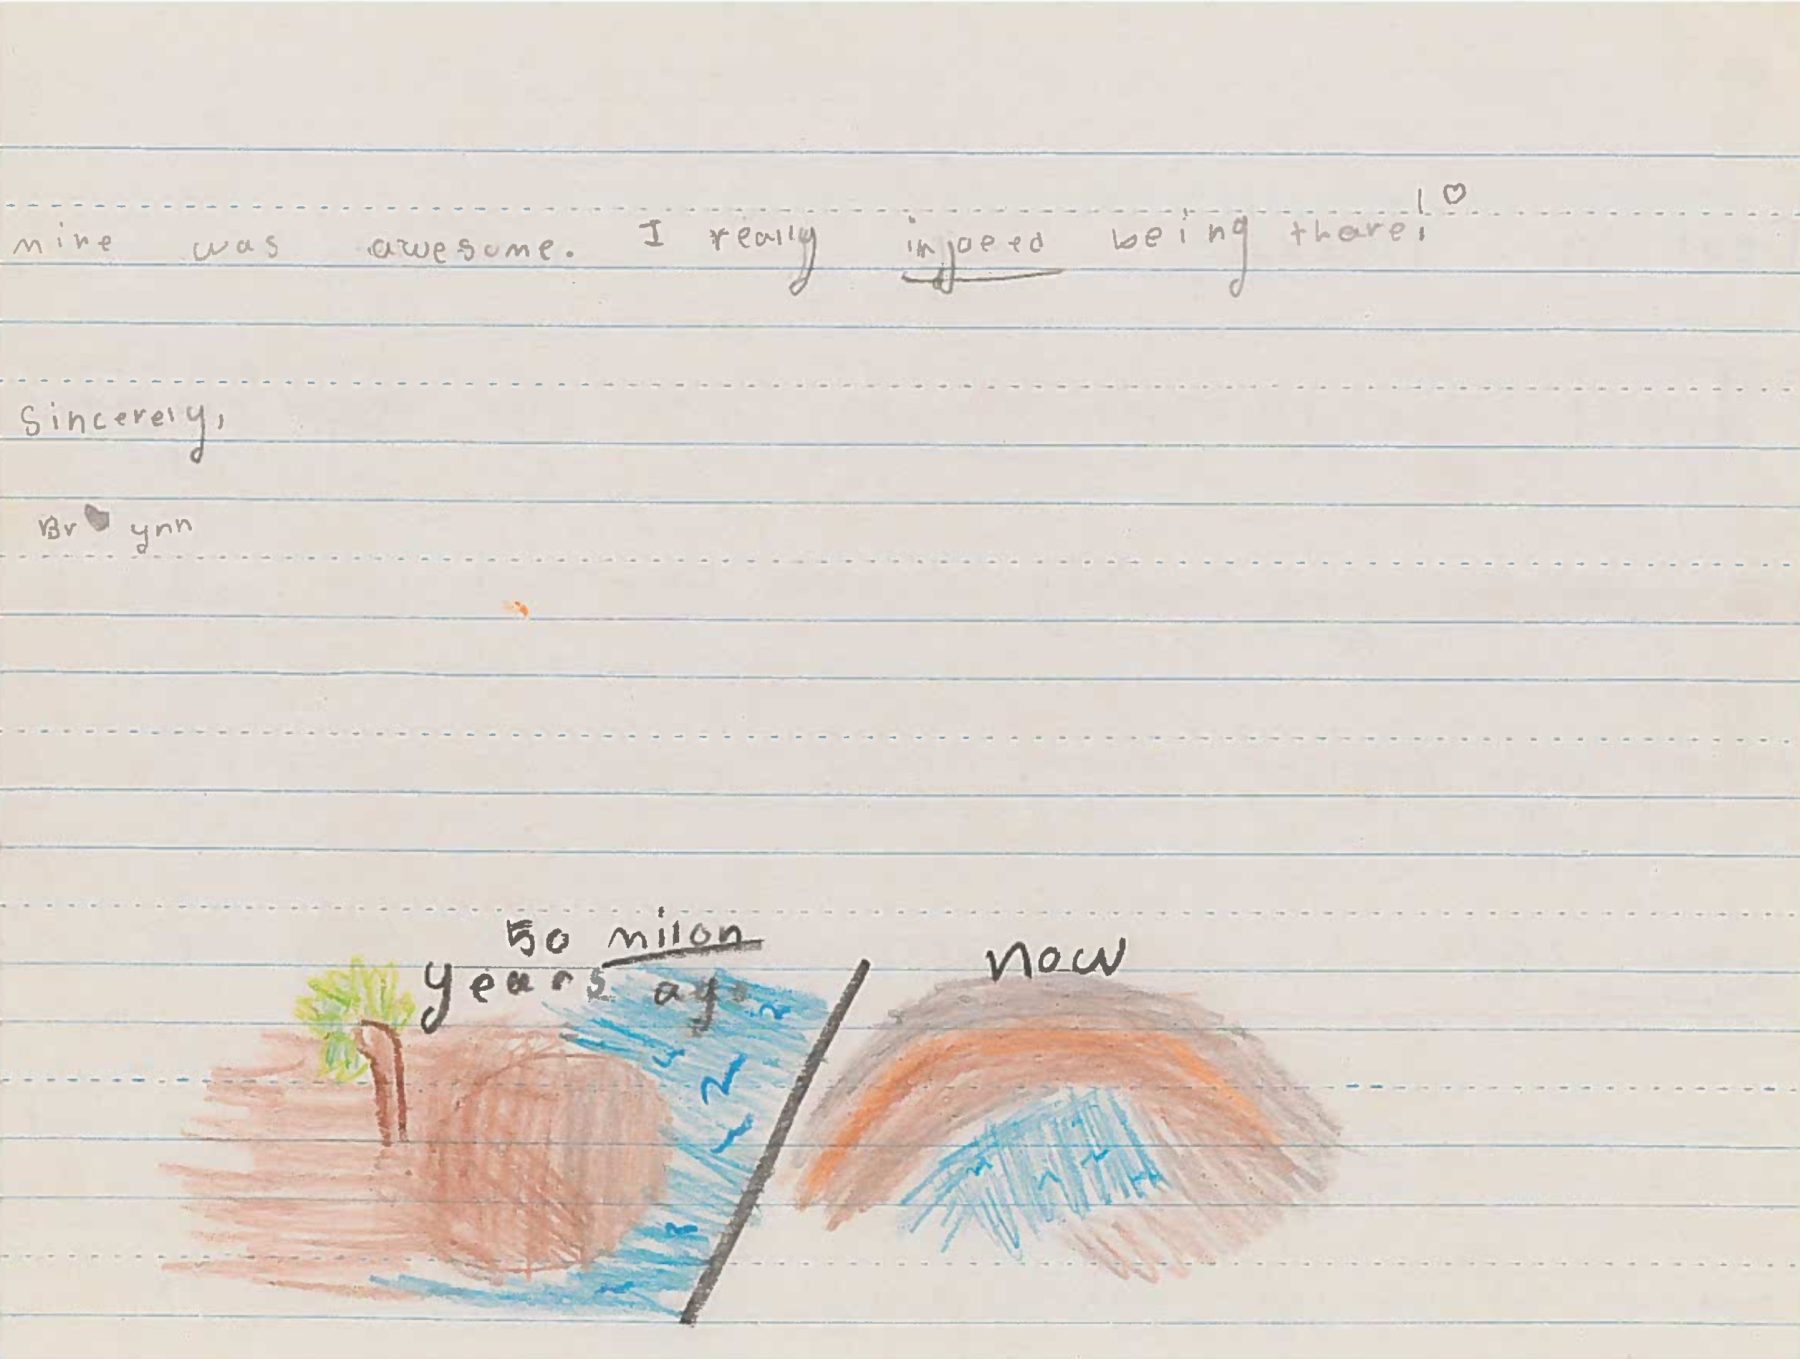 mine was awesome. I really injoeed being thare! ♡
Sincerely,
Br♥ynn
50 milon
years ago
now